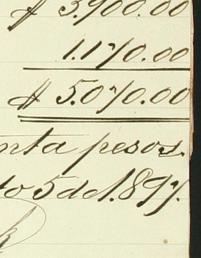 $ 3.900.00
1.170.00
$ 5.070.00
nta pesos.
to 5 de 1.897.